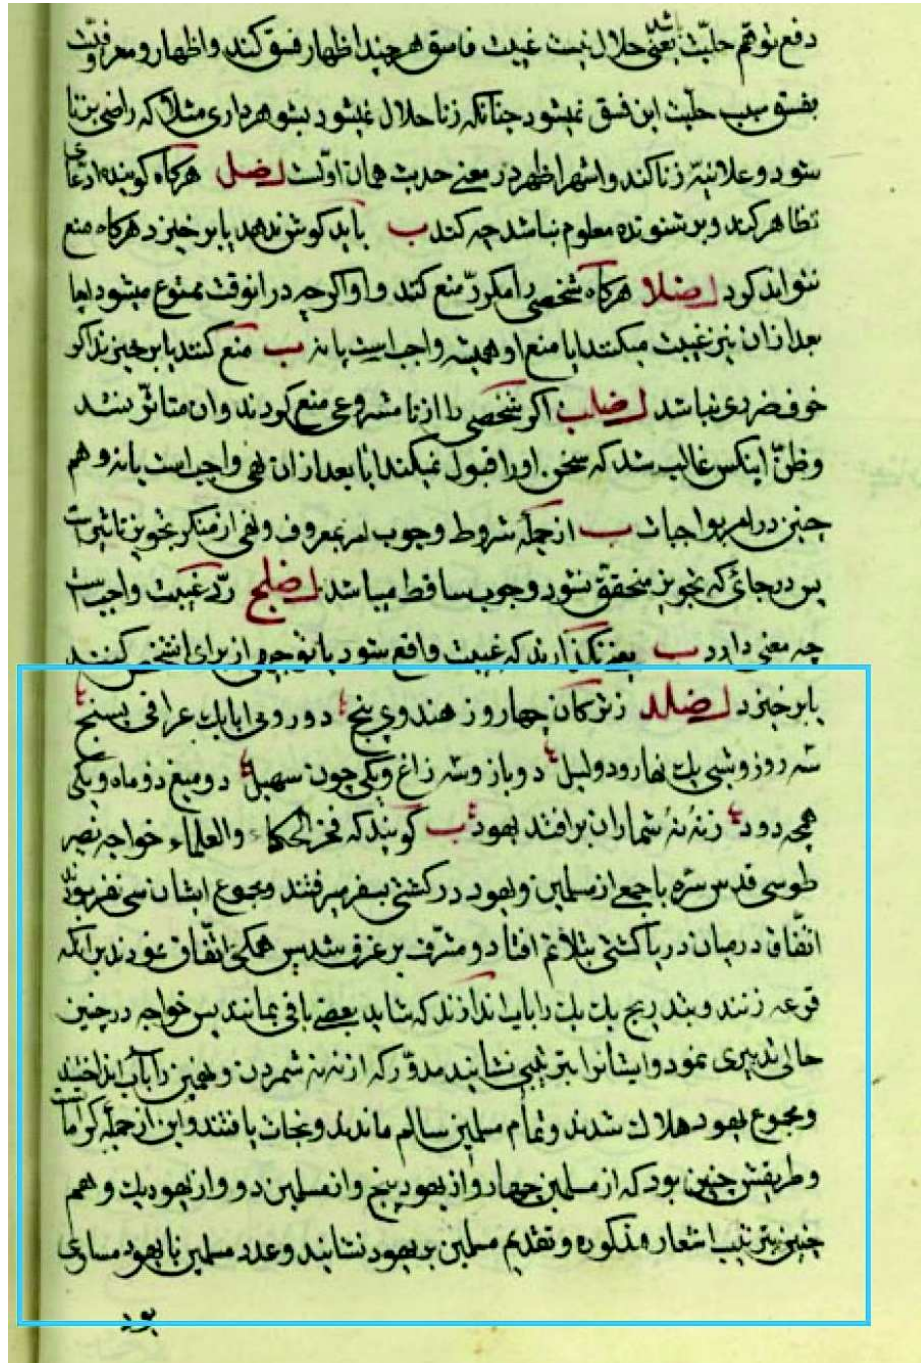 دفع توهم حلیّت یعنی حلال نیست غیبت فاسق هر چند اظهار فسق کند و اظهار و معروفیّت
بفسق سبب حلیّت این فسق نمیشود چنانکه زنا حلال نمیشود بشوهرداری مثلا که راضی بزنا
شود و علانیة زنا کند و اشهر اظهر در معنی حدیث همان اوّلست لضل هرکاه کوینده ادعای
تظاهر کند و بر شنونده معلوم نباشد چه کند ب باید کوش ندهد یا برخیزد هرکاه منع
نتواند کرد لضلا هرکاه شخصی را مکرّر منع کند و او اکرچه در انوقت ممنوع میشود اما
بعد از ان نیز غیبت میکند ایا منع او همیشه واجب است یا نه ب منع کنند یا برخیزند اکر
خوف ضرری نباشد لضلب اکر شخصی را از نا مشروعی منع کردند و ان متاثّر نشد
و ظنّ اینکس غالب شد که سخن او را قبول نمیکند ایا بعد از ان نهی واجب است یا نه و هم
چنین در امر بواجبات ب از جمله شروط وجوب امر بمعروف و نهی از منکر تجویز تاثیر است
پس در جائی که تجویز متحقق نشود وجوب ساقط میباشد لضلج ردّ غیبت واجب است
چه معنی دارد ب یعنی نکذارند که غیبت واقع شود یا توجیهی از برای انشخص کنند
یا برخیزد لضلد ز ترکان چهار و ز هندوی پنج دو رومی ابا یك عراقی بسنج
سه روز و شبی یك نهار و دو لیل دو باز و سه زاغ و یکی چون سهیل دو میغ دو ماه و یکی
همچه دود ز نه نه شماران بر افتد یهود ب کویند که فخر الحکماء والعلماء خواجه نصیر
طوسی قدس سره با جمعی از مسلمین و یهود در کشتی بسفر میرفتند و مجموع ایشان سی نفر بودند
اتّفاق در میان دریا کشتی بتلاطم افتاد و مشرف بر غرق شد پس همکی اتّفاق نمودند بر انکه
قرعه زنند و بتدریج یك یك را باب اندازند که شاید بعضی باقی بمانند پس خواجه در چنین
حالی تدبیری نمود و ایشانرا بترتیبی نشانید مدوّر که از نه نه شمردن و نهمین را باب انداختند
و مجموع یهود هلاك شدند و تمام مسلمین سالم ماندند و نجات یافتند و این از جمله کرامات است
و طریقش چنین بود که از مسلمین چهار و از یهود پنج و از مسلمین دو و از یهود یك و هم
چنین بترتیب اشعار مذکوره و تقدیم مسلمین بر یهود نشانید و عدد مسلمین با یهود مساوی
بود